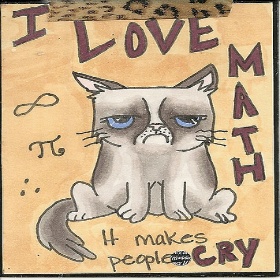 I LOVE
MATH
∞
π
∴
It makes
people CRY